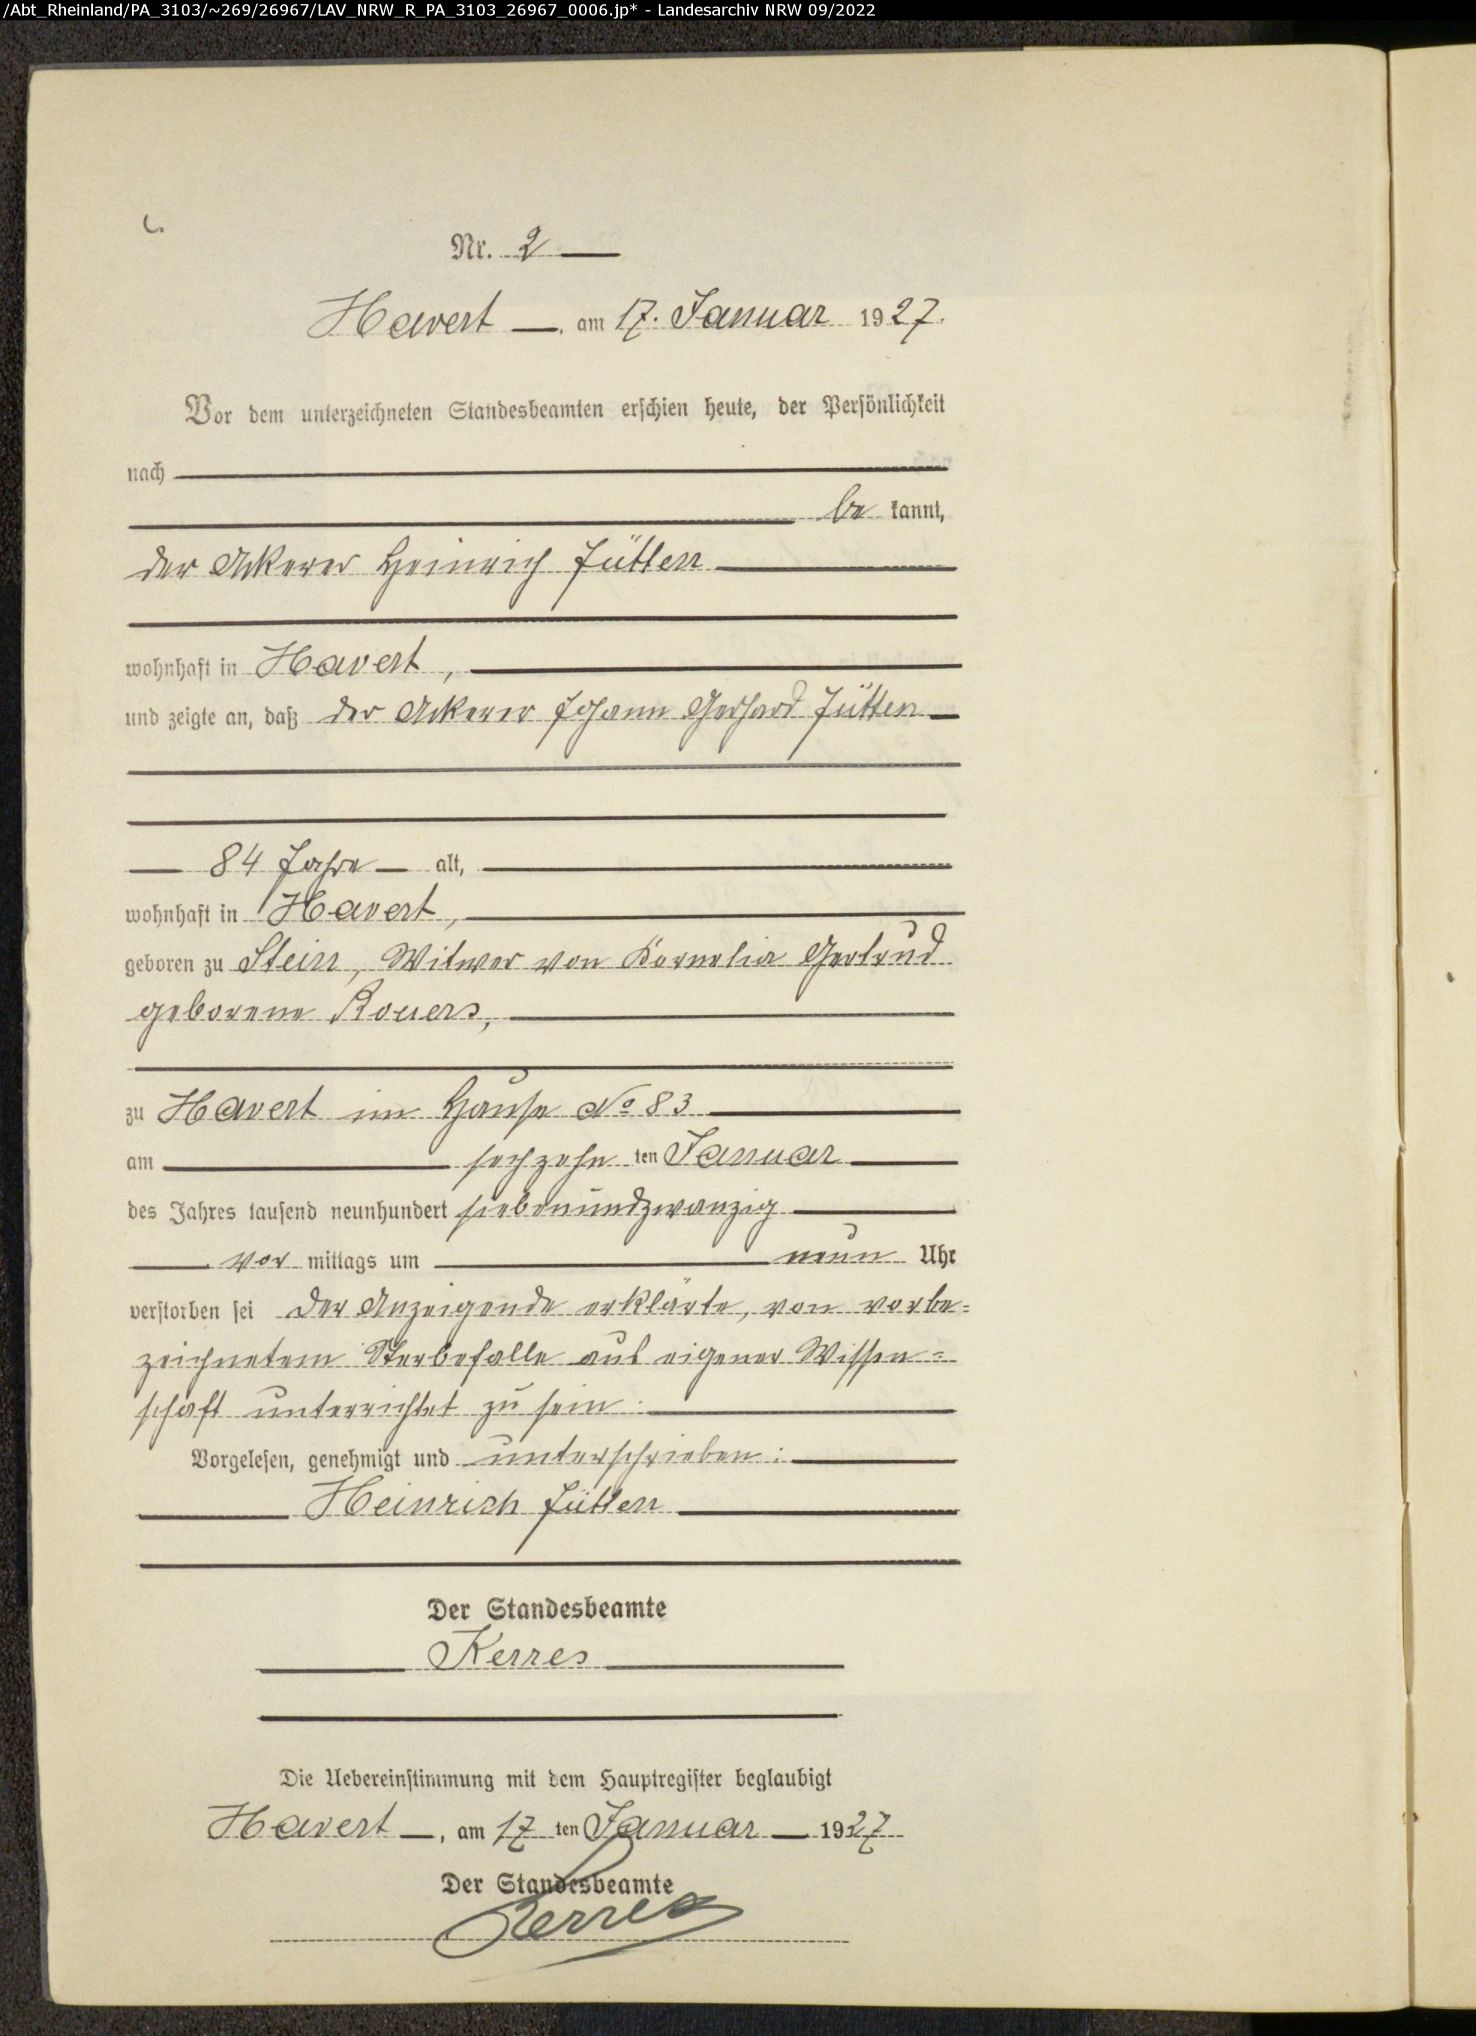 /Abt_Rheinland/PA_3103/~269/26967/LAV_NRW_R_PA_3103_26967_0006.jp* - Landesarchiv NRW 09/2022
C.
Nr. 2
Havert, am 17. Januar 1927.
Vor dem unterzeichneten Standesbeamten erschien heute, der Persönlichkeit
nach
be kannt,
der Ackerer Heinrich Jütten
wohnhaft in Havert,
und zeigte an, daß der Ackerer Johann Gerhard Jütten
84 Jahre alt,
wohnhaft in Havert,
geboren zu Stein, Witwer von Kornelia Gertrud
geborene Rouers,
zu Havert im Hause No 83
am sechzehn ten Januar
des Jahres tausend neunhundert siebenundzwanzig
vor mittags um neun Uhr
verstorben sei Der Anzeigende erklärte, von vorbe=
zeichnetem Sterbefalle aus eigener Wissen=
schaft unterrichtet zu sein.
Vorgelesen, genehmigt und unterschrieben:
Heinrich Jütten
Der Standesbeamte
Kerres
Die Uebereinstimmung mit dem Hauptregister beglaubigt
Havert, am 17 ten Januar 1927
Der Standesbeamte
Kerres